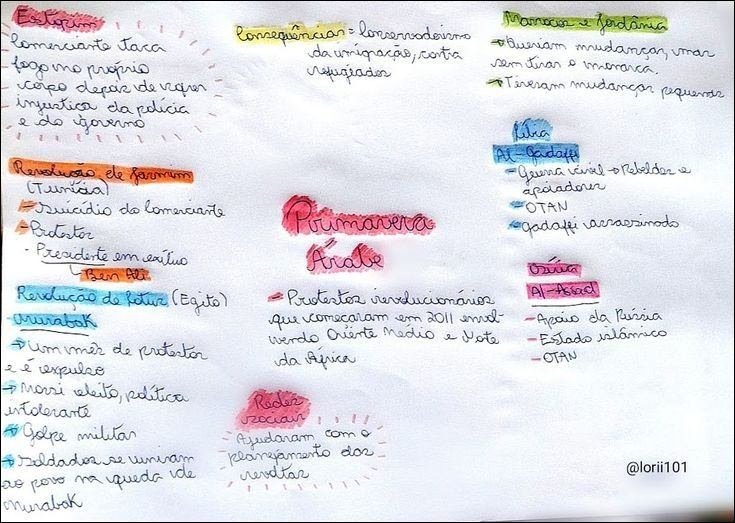 Estopim
Comerciante taca
fogo no próprio
corpo depois de viver
injustiça da polícia
e do governo
Revolução de Jasmim
(Tunísia)
- Suicídio do Comerciante
- Protestos
- Presidente em exílio
↳ Ben Ali
Revolução de Lótus (Egito)
Murabak
→ Um mês de protestos
e é expulso
→ Morsi eleito, política
intolerante
→ Golpe militar
→ Soldados se uniram
ao povo na queda de
Murabak
Consequências = Conservadorismo
da imigração, contra
refugiados
Primavera
Árabe
= Protestos revolucionários
que começaram em 2011 envol-
vendo Oriente Médio e Norte
da África
Redes
sociais
Ajudaram com o
planejamento das
revoltas
Marrocos e Jordânia
→ Queriam mudanças, mas
sem tirar o monarca.
→ Tiveram mudanças pequenas
Líbia
Al-Gadaffi
- Guerra civil → Rebeldes e
apoiadores
- OTAN
- Gadaffi assassinado
Síria
Al-Assad
- Apoio da Rússia
- Estado islâmico
- OTAN
@lorii101